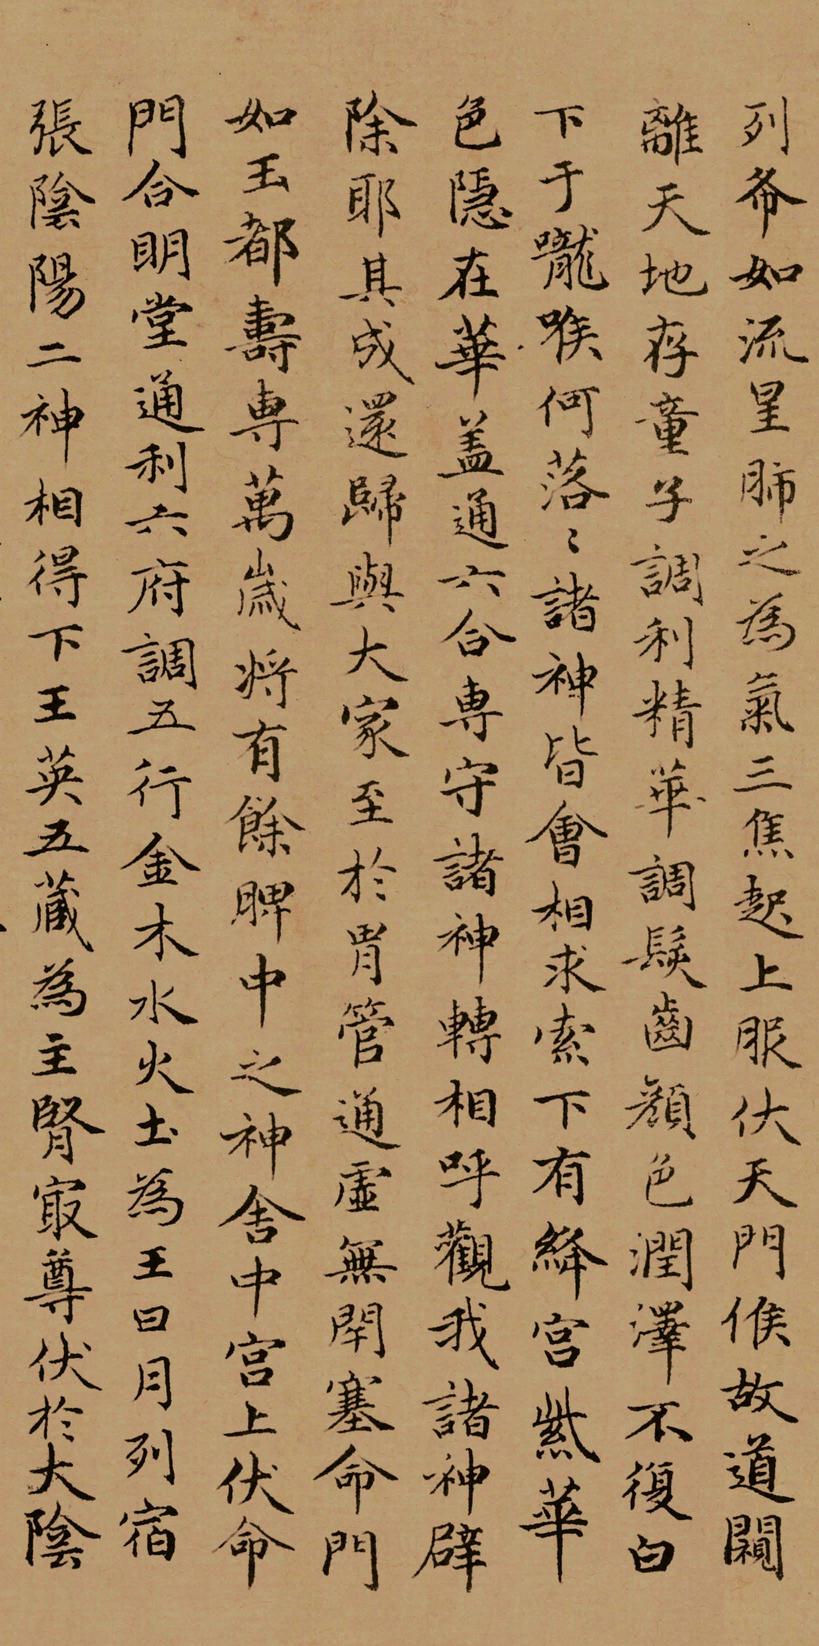 列布如流星肺之為氣三焦起上服伏天門候故道闚
離天地存童子調利精華調髮齒顏色潤澤不復白
下于嚨喉何落〻諸神皆會相求索下有絳宮紫華
色隱在華盖通六合専守諸神轉相呼觀我諸神辟
除耶其成還歸與大家至於胃管通虛無閇塞命門
如玉都壽専萬歲将有餘脾中之神舍中宮上伏命
門合明堂通利六府調五行金木水火土為王日月列宿
張陰陽二神相得下王英五藏為主腎寂尊伏於大陰